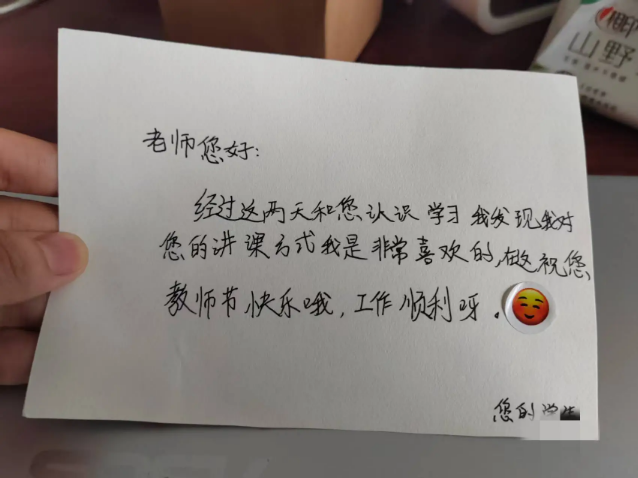 山野
老师您好:
经过这两天和您认识 学习 我发现我对
您的讲课方式我是非常喜欢的,在这祝您、
教师节快乐哦,工作顺利呀。
您的学生